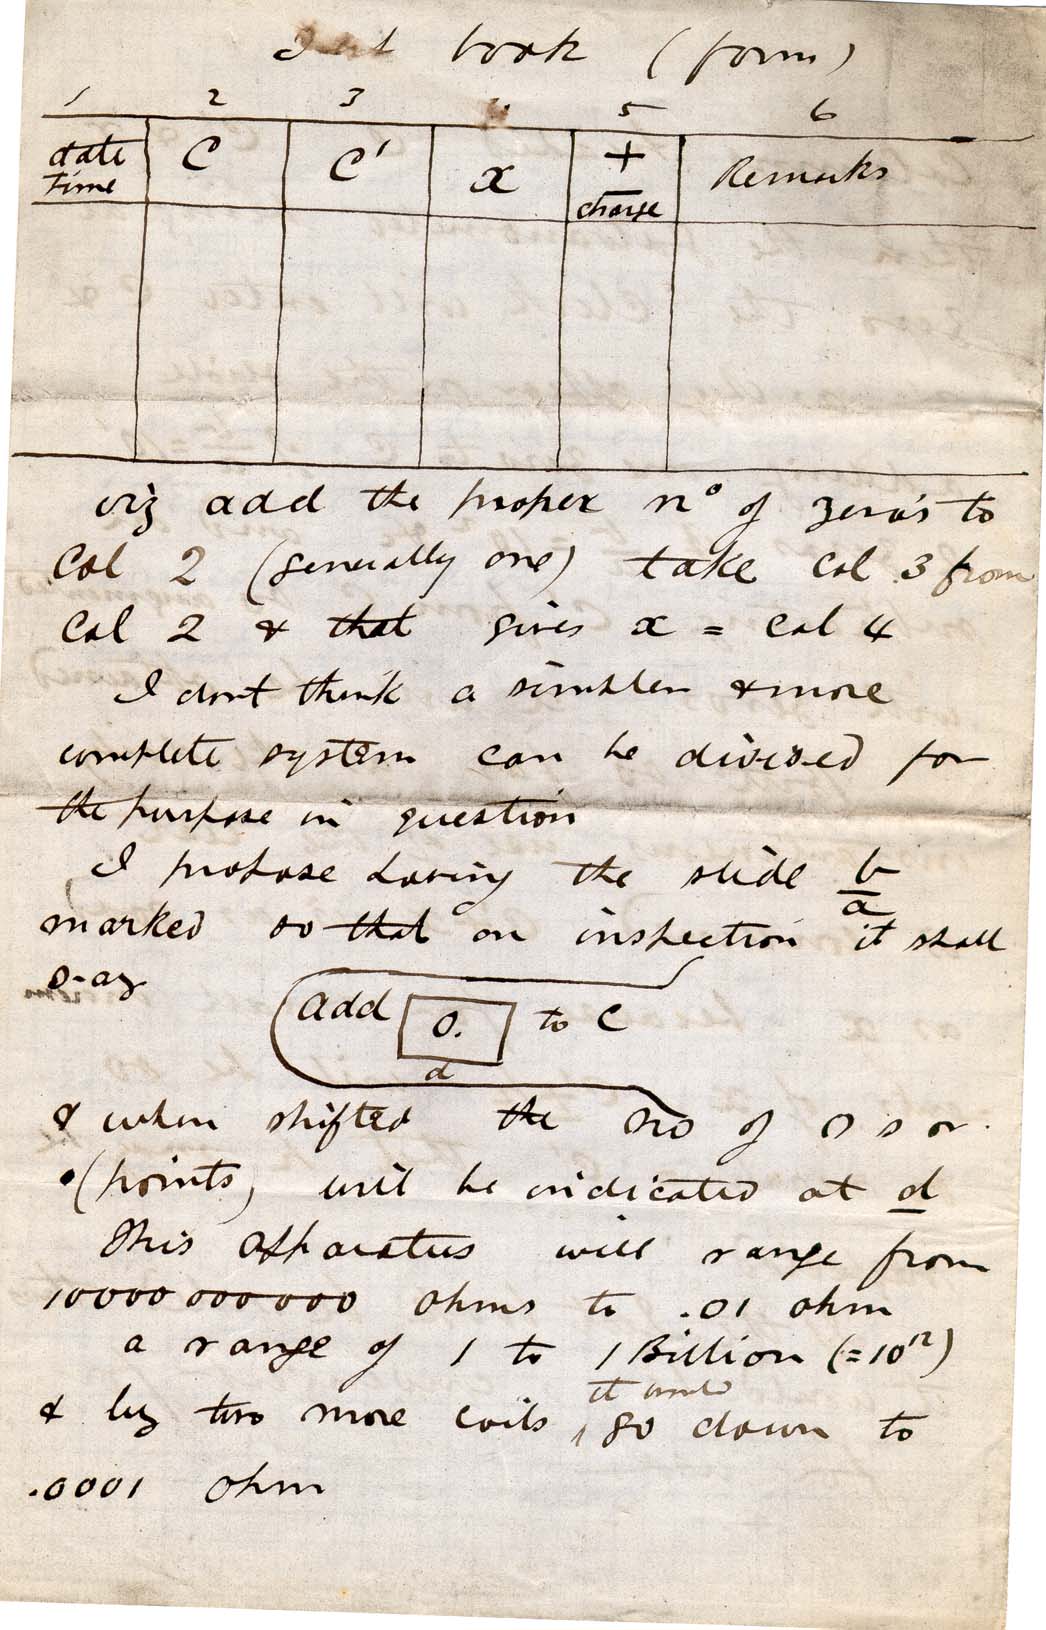 Test book (form)
1 2 3 4 5 6
date time C C' x + charge Remarks
viz add the proper nº of zero's to
Col 2 (generally one) take Col 3 from
Col 2 & that gives x = Col 4
I dont think a simpler & more
complete system can be divised for
the purpose in question
I propose having the slide b/a
marked so that on inspection it shall
say
add 0. to C
d
& when shifted the no of 0 s or
•(points) will be indicated at d
This apparatus will range from
10000 000 000 ohms to .01 ohm
a range of 1 to 1 Billion (=10¹²)
& by two more coils it would go down to
.0001 ohm